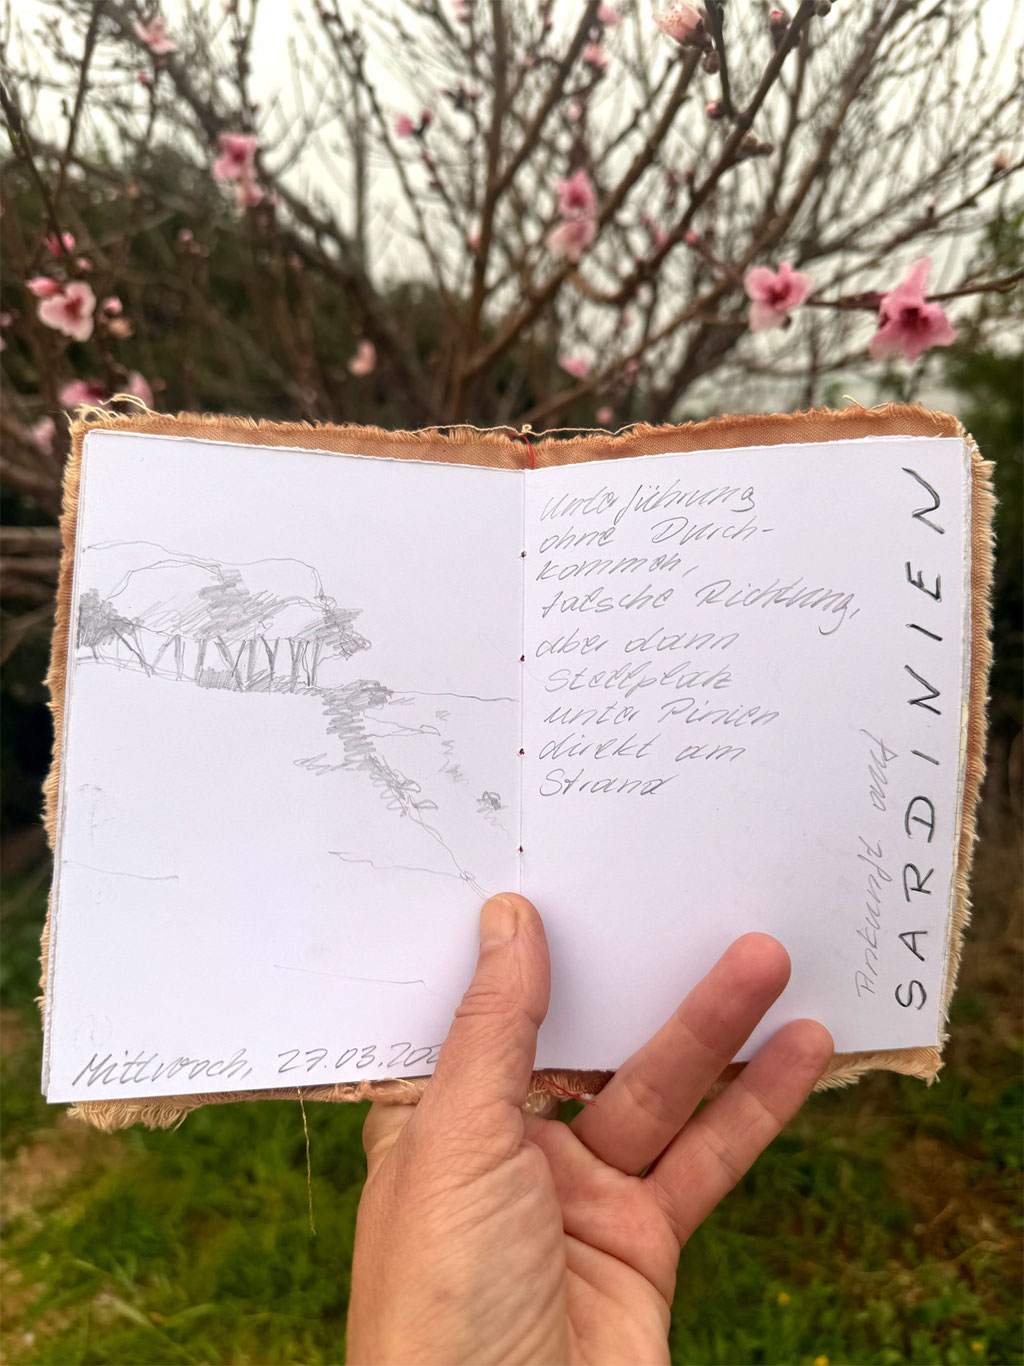 Mittwoch, 27.03.202
Unterführung
ohne Durch-
kommen,
falsche Richtung,
aber dann
Stellplatz
unter Pinien
direkt am
Strand
Ankunft auf
SARDINIEN